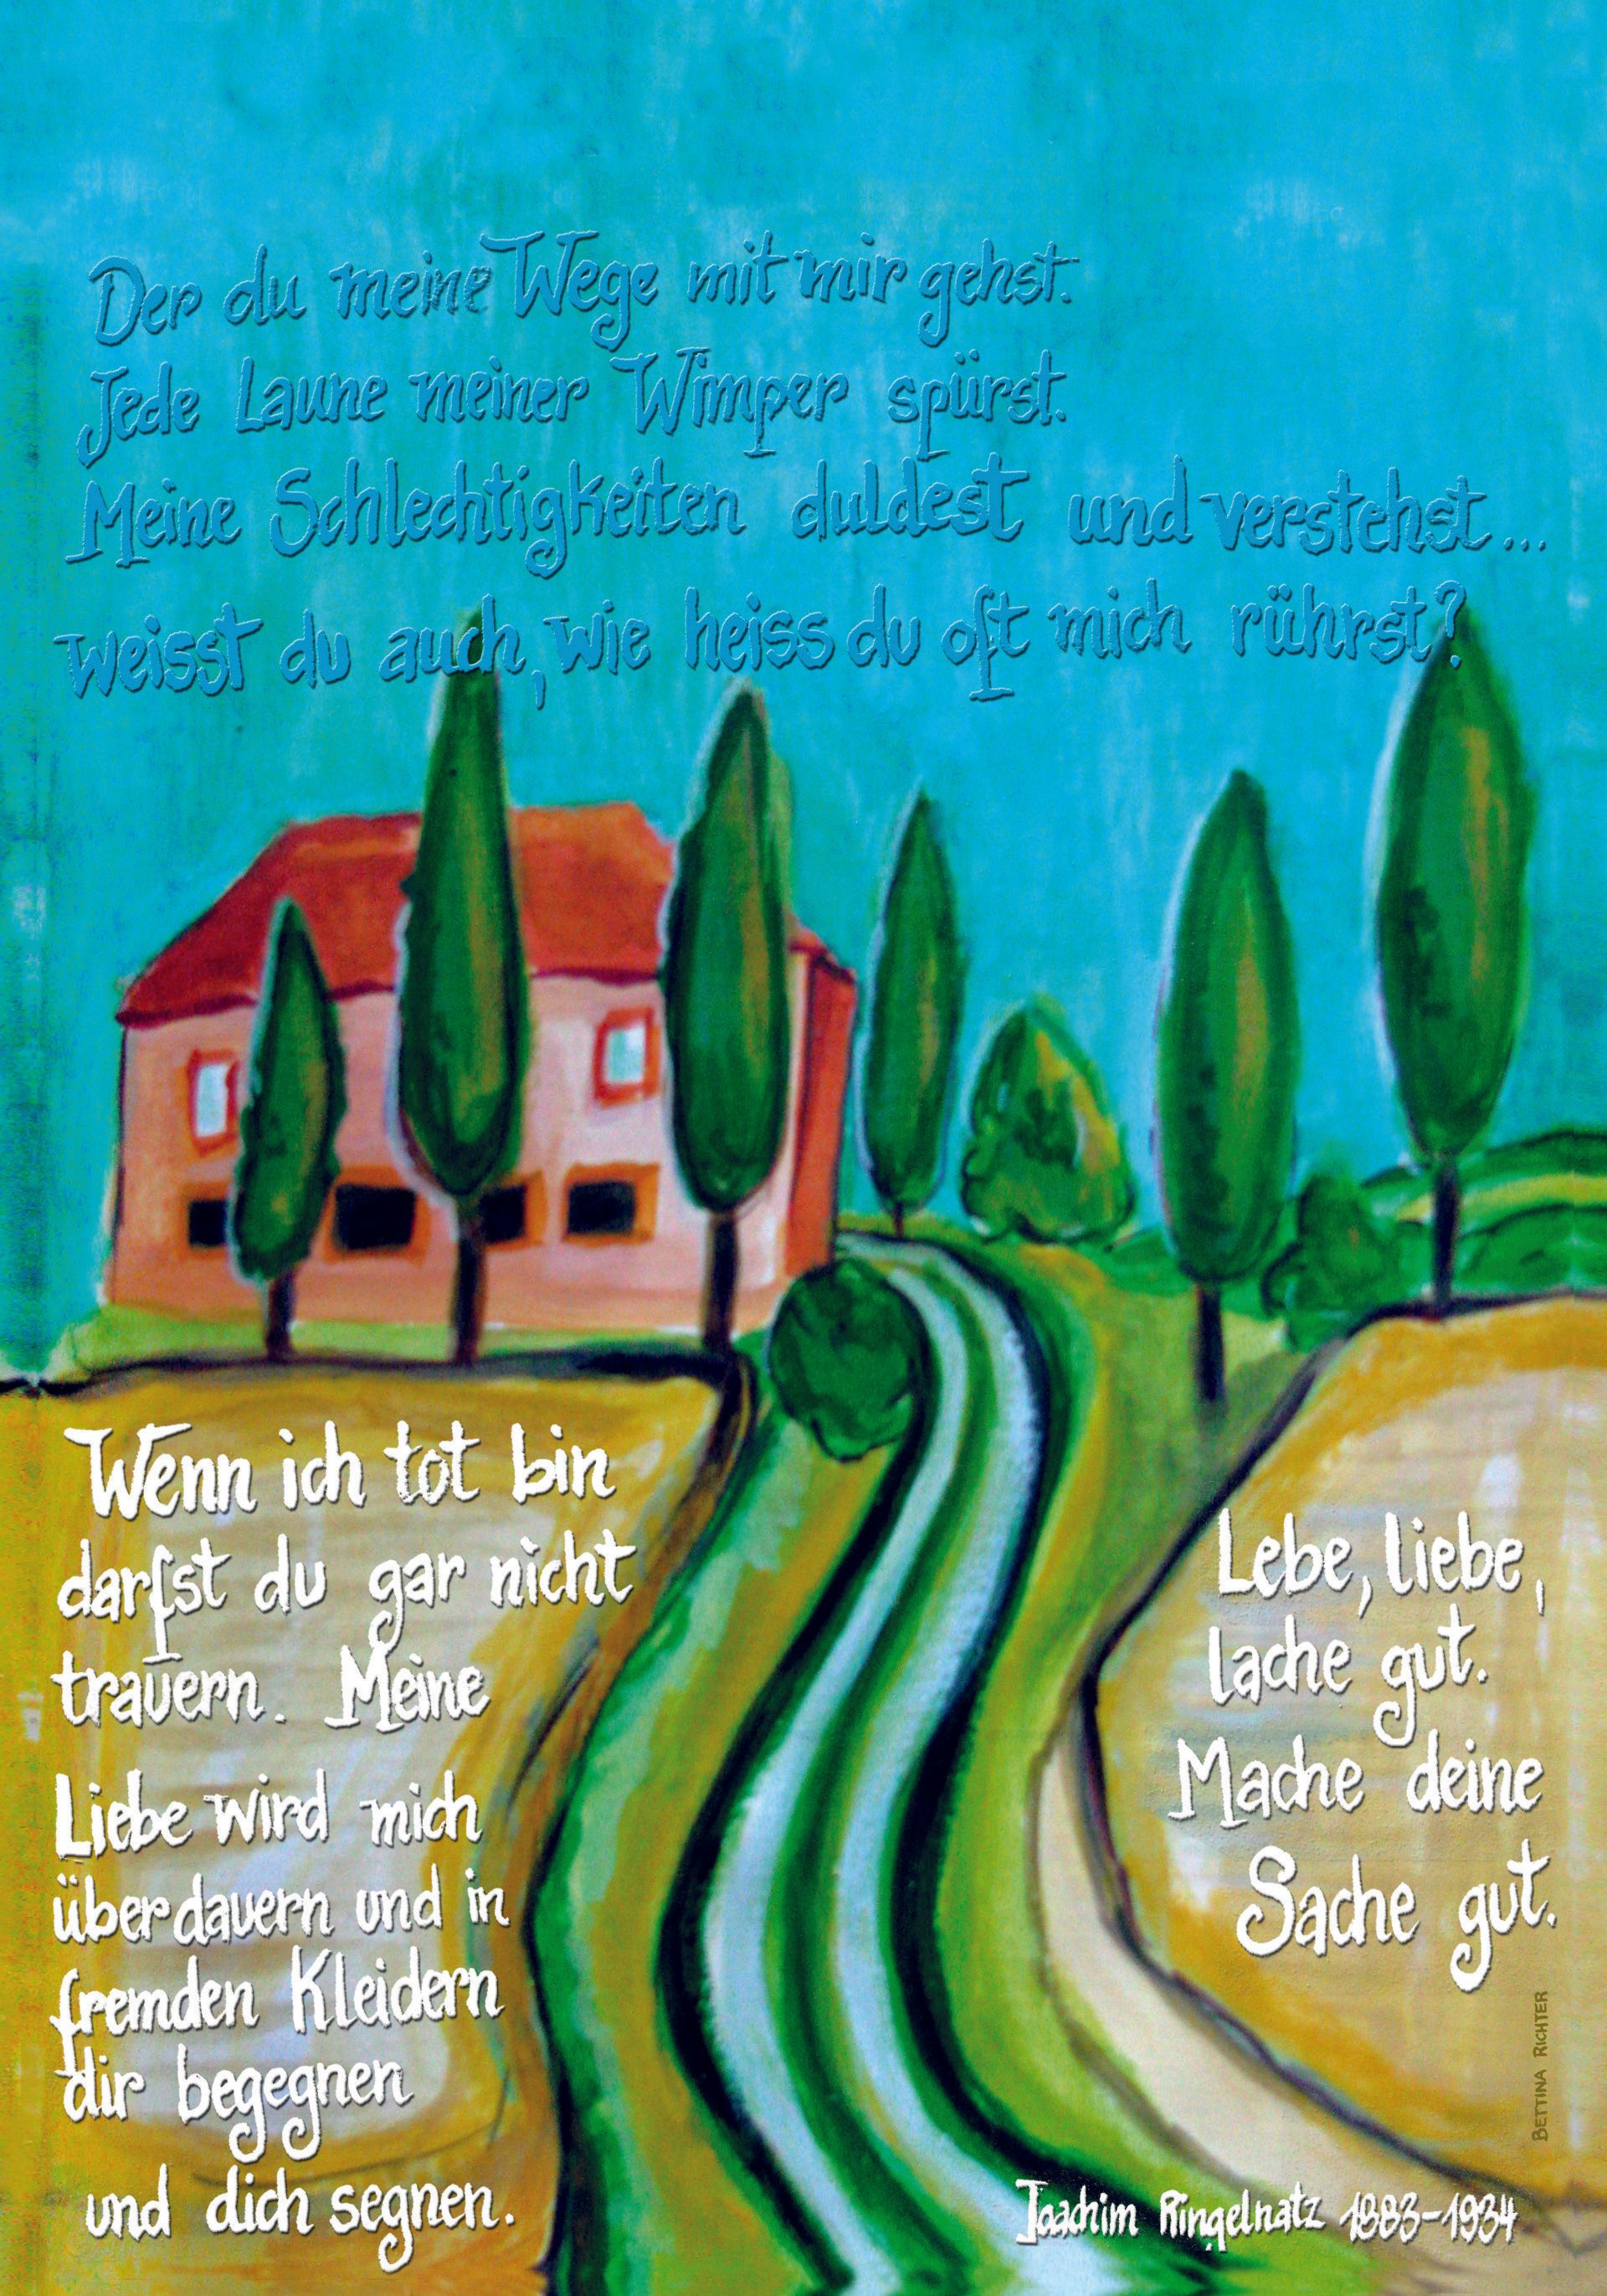 Der du meine Wege mit mir gehst.
Jede Laune meiner Wimper spürst.
Meine Schlechtigkeiten duldest und verstehst...
weisst du auch, wie heiss du oft mich rührst?
Wenn ich tot bin
darfst du gar nicht
trauern. Meine
Liebe wird mich
überdauern und in
fremden Kleidern
dir begegnen
und dich segnen.
Lebe, liebe,
lache gut.
Mache deine
Sache gut.
BETTINA RICHTER
Joachim Ringelnatz 1883-1934